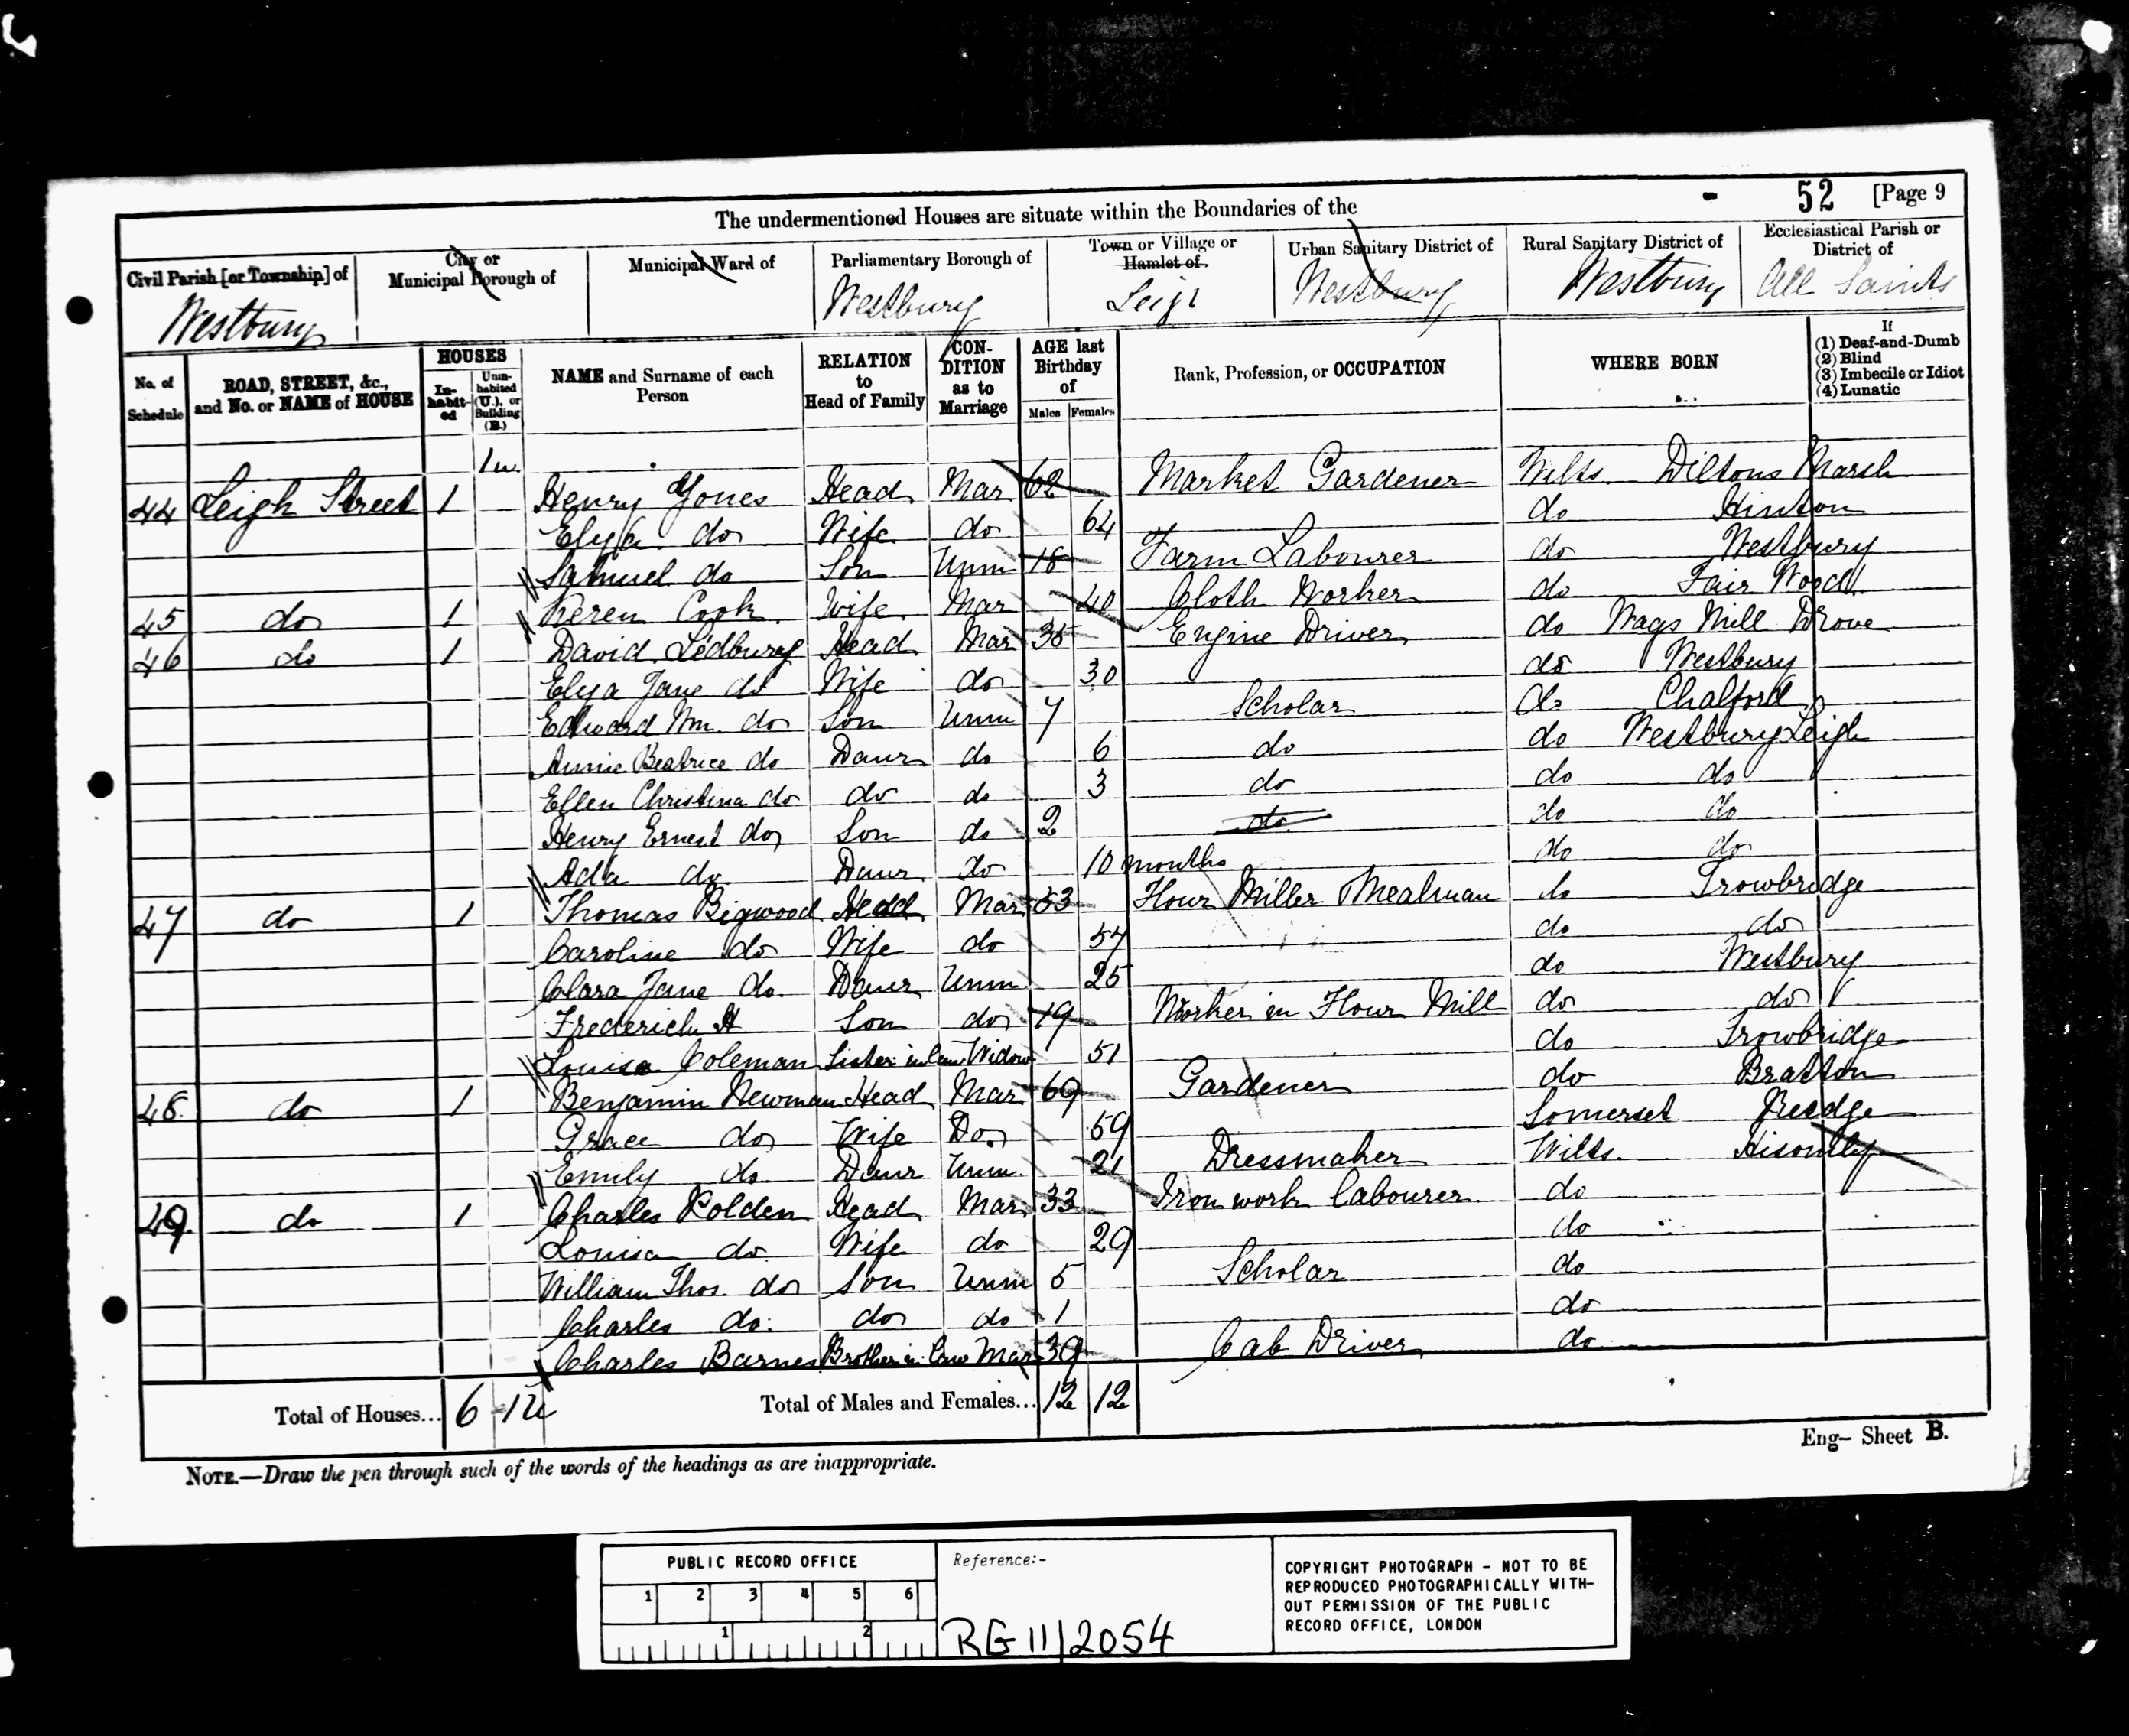 52 [Page 9
The undermentioned Houses are situate within the Boundaries of the
Civil Parish [or Township] of
City or Municipal Borough of
Municipal Ward of
Parliamentary Borough of
Town or Village or Hamlet of
Urban Sanitary District of
Rural Sanitary District of
Ecclesiastical Parish or District of
Westbury Westbury Leigh Westbury Westbury All Saints
No. of Schedule
ROAD, STREET, &c., and No. or NAME of HOUSE
HOUSES
In-habit-ed
Unin-habited (U.), or Building (B.)
NAME and Surname of each Person
RELATION to Head of Family
CON-DITION as to Marriage
AGE last Birthday of
Males Females
Rank, Profession, or OCCUPATION
WHERE BORN
If
(1) Deaf-and-Dumb
(2) Blind
(3) Imbecile or Idiot
(4) Lunatic
1u.
44 Leigh Street 1 Henry Jones Head Mar 62 Market Gardener Wilts. Diltons Marsh
Eliza do Wife do 64 do Hinton
Samuel do Son Unm 18 Farm Labourer do Westbury
45 do 1 Keren Cook. Wife Mar 40 Cloth Worker do Fair Wood
46 do 1 David Ledbury Head Mar 35 Engine Driver do Wags Mill Drove
Eliza Jane do Wife do 30 do Westbury
Edward Wm. do Son Unm 7 Scholar do Chalford
Annie Beatrice do Daur do 6 do do Westbury Leigh
Ellen Christina do do do 3 do do do
Henry Ernest do Son do 2 do do do
Ada do Daur do 10 months do do
47 do 1 Thomas Bigwood Head Mar 53 Flour Miller Mealman do Trowbridge
Caroline do Wife do 57 do do
Clara Jane do. Daur Unm 25 do Westbury
Frederick H Son do 19 Worker in Flour Mill do do
Louisa Coleman Sister in law Widow 51 do Trowbridge
48. do 1 Benjamin Newman Head Mar 69 Gardener do Bratton
Grace do Wife Do 59 Somerset
Emily do Daur Unm. 21 Dressmaker Wilts.
49. do 1 Charles Holden Head Mar 33 Iron work labourer do
Louisa do Wife do 29 do
William Thos. do Son Unm 5 Scholar do
Charles do. do do 1 do
Charles Barnes Brother in law Mar 39 Cab Driver do
Total of Houses... 6 1u Total of Males and Females... 12 12
Eng- Sheet B.
NOTE.—Draw the pen through such of the words of the headings as are inappropriate.
PUBLIC RECORD OFFICE
1 2 3 4 5 6
1 2
Reference:-
RG 11/2054
COPYRIGHT PHOTOGRAPH - NOT TO BE
REPRODUCED PHOTOGRAPHICALLY WITH-
OUT PERMISSION OF THE PUBLIC
RECORD OFFICE, LONDON